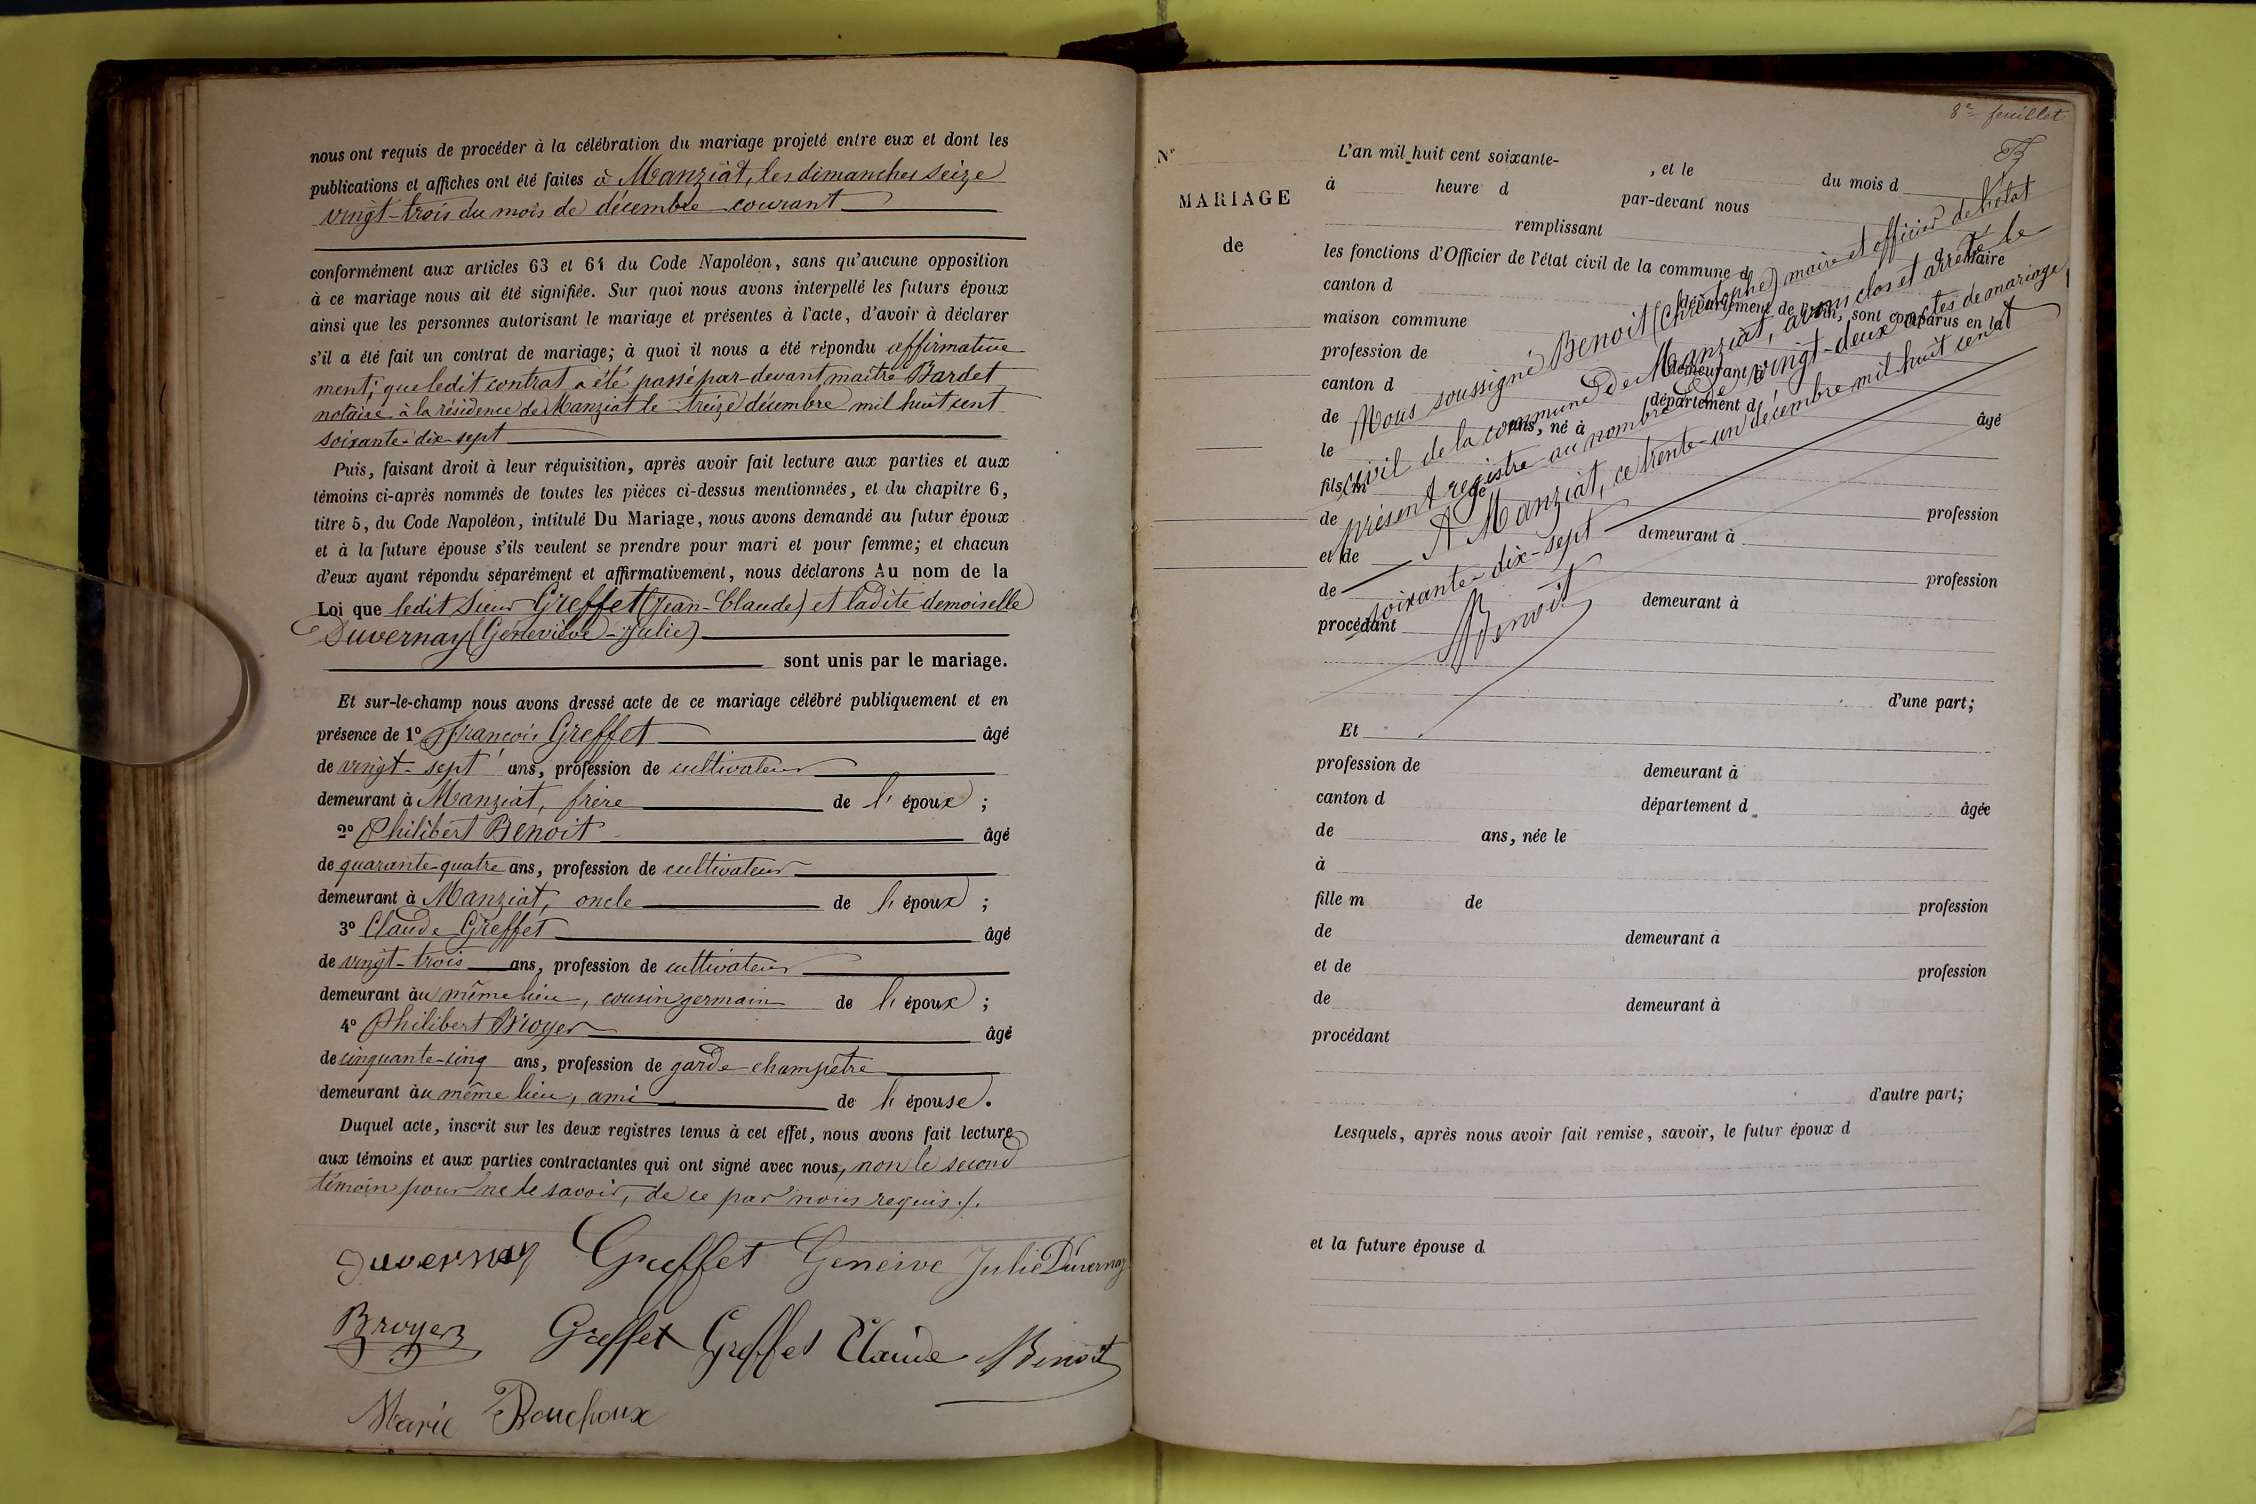 nous ont requis de procéder à la célébration du mariage projeté entre eux et dont les
publications et affiches ont été faites à Manziat, les dimanches seize
vingt-trois du mois de décembre courant
conformément aux articles 63 et 64 du Code Napoléon, sans qu'aucune opposition
à ce mariage nous ait été signifiée. Sur quoi nous avons interpellé les futurs époux
ainsi que les personnes autorisant le mariage et présentes à l'acte, d'avoir à déclarer
s'il a été fait un contrat de mariage; à quoi il nous a été répondu affirmative
ment; que ledit contrat a été passé par-devant maître Bardet
notaire à la résidence de Manziat le treize décembre mil huit cent
soixante-dix-sept
Puis, faisant droit à leur réquisition, après avoir fait lecture aux parties et aux
témoins ci-après nommés de toutes les pièces ci-dessus mentionnées, et du chapitre 6,
titre 5, du Code Napoléon, intitulé Du Mariage, nous avons demandé au futur époux
et à la future épouse s'ils veulent se prendre pour mari et pour femme; et chacun
d'eux ayant répondu séparément et affirmativement, nous déclarons Au nom de la
Loi que ledit Sieur Greffet (Jean-Claude) et ladite demoiselle
Duvernay (Géneviève-Julie)
sont unis par le mariage.
Et sur-le-champ nous avons dressé acte de ce mariage célébré publiquement et en
présence de 1° François Greffet âgé
de vingt-sept ans, profession de cultivateur
demeurant à Manziat, frère de l'époux;
2° Philibert Benoit âgé
de quarante-quatre ans, profession de cultivateur
demeurant à Manziat, oncle de l'époux;
3° Claude Greffet âgé
de vingt-trois ans, profession de cultivateur
demeurant au même lieu, cousin germain de l'époux;
4° Philibert Broyer âgé
de cinquante-cinq ans, profession de garde-champêtre
demeurant au même lieu, ami de l'épouse.
Duquel acte, inscrit sur les deux registres tenus à cet effet, nous avons fait lecture
aux témoins et aux parties contractantes qui ont signé avec nous, non le second
témoin pour ne le savoir, de ce par nous requis./.
Duvernay Greffet Geneive Julie Duvernay
Broyer Greffet Greffet Claude Benoit
Marie Bouchoux
8e feuillet
N°
MARIAGE
de
L'an mil huit cent soixante- , et le du mois d
à heure d par-devant nous
remplissant
les fonctions d'Officier de l'état civil de la commune d
canton d département de l'Ain, sont comparus en la
maison commune
profession de demeurant à
canton d département d
de ans, né à âgé
le
fils m de
de profession
et de demeurant à
de profession
procédant demeurant à
Nous soussigné Benoit (Christophe) maire et officier de l'état
civil de la commune de Manziat, avons clos et arrêté le
présent registre au nombre de vingt-deux actes de mariage
A Manziat, ce trente-un décembre mil huit cent
soixante-dix-sept
Benoit
d'une part;
Et
profession de demeurant à
canton d département d âgée
de ans, née le
à
fille m de profession
de demeurant à
et de profession
de demeurant à
procédant
d'autre part;
Lesquels, après nous avoir fait remise, savoir, le futur époux d
et la future épouse d